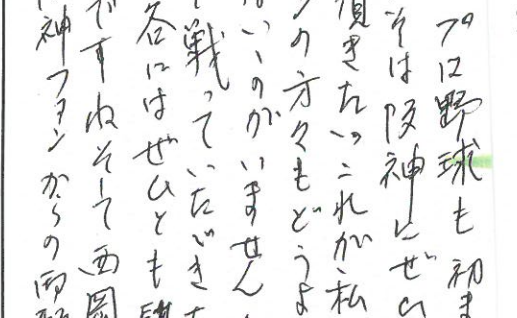 プロ野球も初ま
そは阪神にぜひ
頂きたいこれが私
の方々もどうよ
いのがいません
戦っていただきた
名にはぜひとも
ですねそして西岡
神ファンからの